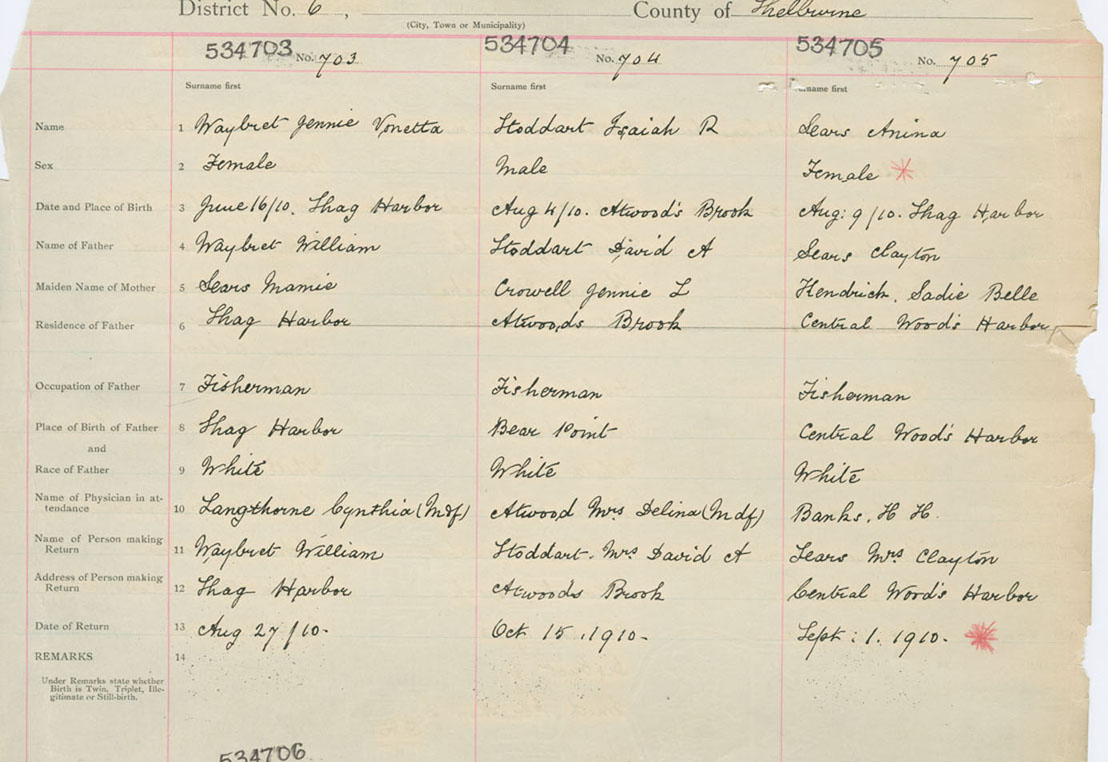 District No. 6, County of Shelburne
(City, Town or Municipality)
534703 No. 703 534704 No. 704 534705 No. 705
Surname first Surname first name first
Name 1 Waybret Jennie Vonetta Stoddart Isaiah R Sears Anina
Sex 2 Female Male Female
Date and Place of Birth 3 June 16/10. Shag Harbor Aug 4/10. Atwood's Brook Aug: 9/10. Shag Harbor
Name of Father 4 Waybret William Stoddart David A Sears Clayton
Maiden Name of Mother 5 Sears Mamie Crowell Jennie L Kendrick, Sadie Belle
Residence of Father 6 Shag Harbor Atwoods Brook Central Wood's Harbor
Occupation of Father 7 Fisherman Fisherman Fisherman
Place of Birth of Father 8 Shag Harbor Bear Point Central Wood's Harbor
and
Race of Father 9 White White White
Name of Physician in at-
tendance 10 Langthorne Cynthia (Mdf) Atwood Mrs Delina (Mdf) Banks, H H.
Name of Person making
Return 11 Waybret William Stoddart. Mrs David A Sears Mrs Clayton
Address of Person making
Return 12 Shag Harbor Atwoods Brook Central Wood's Harbor
Date of Return 13 Aug 27/10- Oct 15, 1910- Sept: 1. 1910-
REMARKS 14
Under Remarks state whether
Birth is Twin, Triplet, Ille-
gitimate or Still-birth.
534706